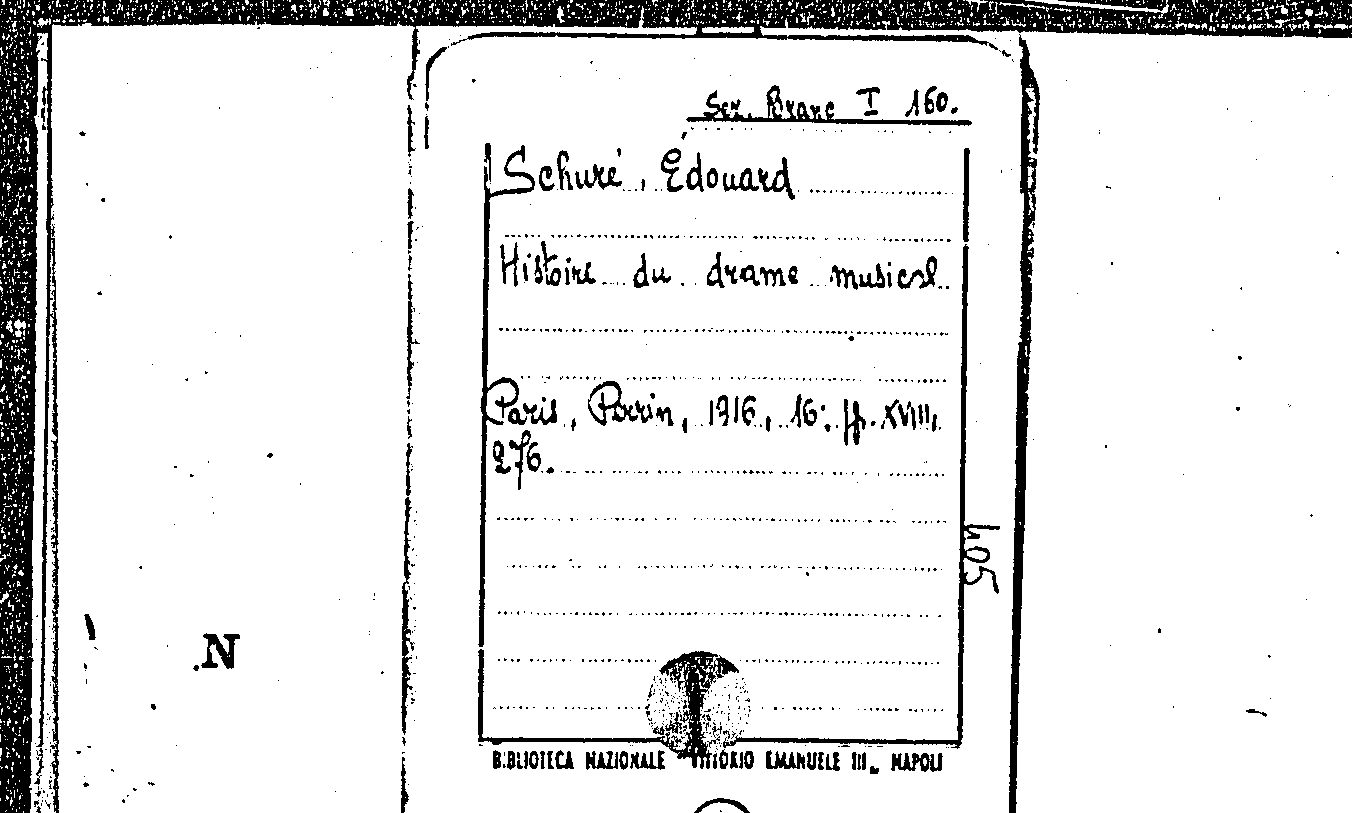 Sez. Branc I 160.
Schuré, Édouard
Histoire du drame musical
Paris, Perrin, 1916, 16°, pp. XVIII,
276.
405
N
BIBLIOTECA NAZIONALE "VITTORIO EMANUELE III„ NAPOLI